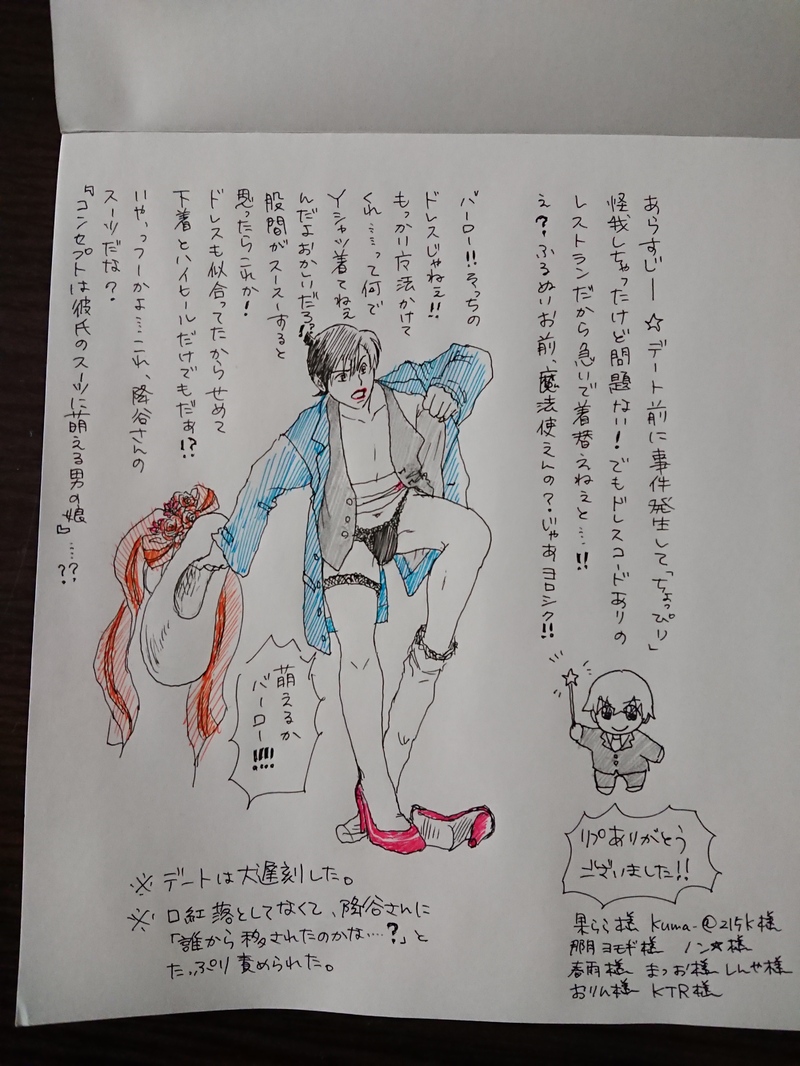 あらすじー☆デート前に事件発生して「ちょっぴり」
怪我しちゃったけど問題ない!でもドレスコードありの
レストランだから急いで着替えねぇと…!!
え?ふるぬいお前、魔法使えんの?じゃあヨロシク!!
バーロー!!そっちの
ドレスじゃねぇ!!
もっかい魔法かけて
くれ……って何で
Yシャツ着てねぇ
んだよおかしいだろ!?
股間がスースーすると
思ったらこれか!
ドレスも似合ってたからせめて
下着とハイヒールだけでもだぁ!?
いやっつーかよ…これ、降谷さんの
スーツだな?
『コンセプトは彼氏のスーツに萌える男の娘』……??
萌えるか
バーロー!!!!
リプありがとう
ございました!!
※デートは大遅刻した。
※口紅落としてなくて、降谷さんに
「誰から移されたのかな…?」と
たっぷり責められた。
果らら様 Kuma-@215K様
那月ヨモギ様 ノン☆様
春雨様 まつお様 しんや様
おりん様 KTR様